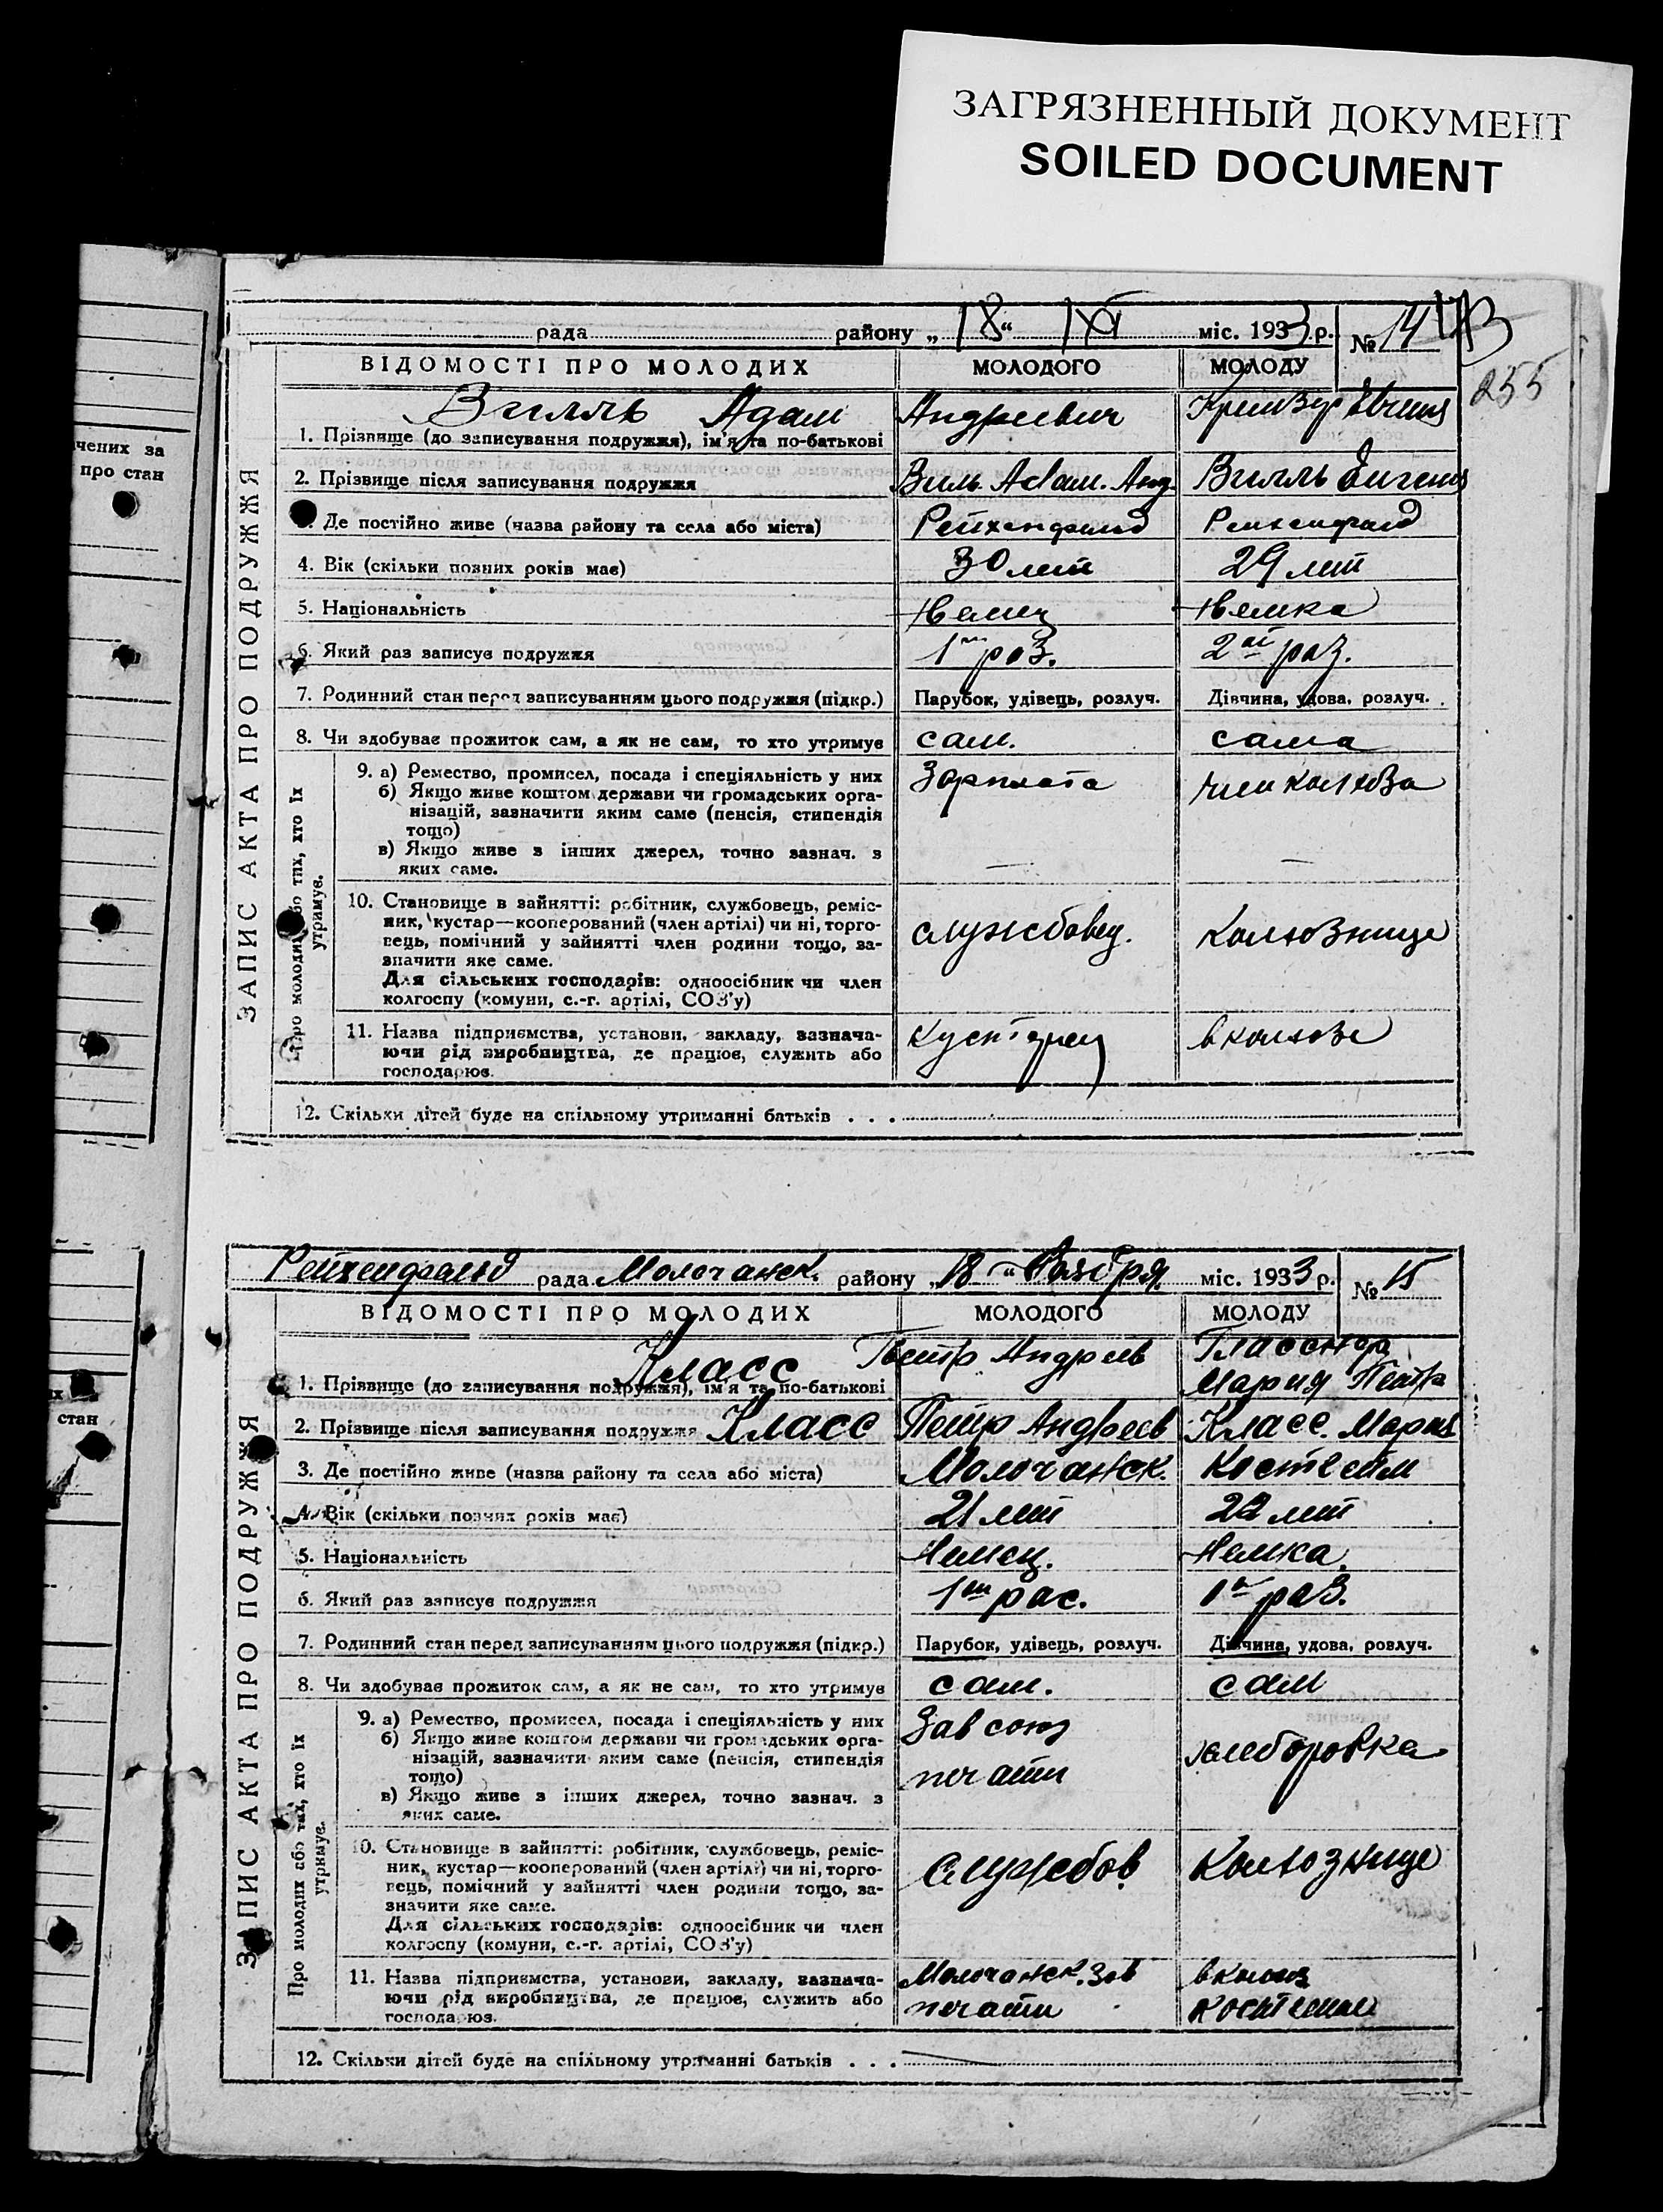 ЗАГРЯЗНЕННЫЙ ДОКУМЕНТ
SOILED DOCUMENT
чених за
про стан
стан
рада району „18“ XI міс. 1933 р. № 14
255
ВІДОМОСТІ ПРО МОЛОДИХ МОЛОДОГО МОЛОДУ
Вилль Адам Андреевич
1. Прізвище (до записування подружжя), ім'я та по-батькові
2. Прізвище після записування подружжя Виль Adam. Анд. Вилль
Де постійно живе (назва району та села або міста) Рейхенфельд Рейхенфельд
4. Вік (скільки повних років має) 30 лет 29 лет
5. Національність Немец Немка
6. Який раз записує подружжя 1й раз. 2ой раз.
7. Родинний стан перед записуванням цього подружжя (підкр.) Парубок, удівець, розлуч. Дівчина, удова, розлуч.
8. Чи здобуває прожиток сам, а як не сам, то хто утримує сам. сама
ЗАПИС АКТА ПРО ПОДРУЖЖЯ
Про молодих або тих, хто їх
утримує.
9. а) Ремество, промисел, посада і спеціяльність у них Зарплата член колхоза
б) Якщо живе коштом держави чи громадських орга-
нізацій, зазначити яким саме (пенсія, стипендія
тощо)
в) Якщо живе з інших джерел, точно зазнач. з
яких саме.
10. Становище в зайнятті: робітник, службовець, реміс-
ник, кустар—кооперований (член артілі) чи ні, торго-
вець, помічний у зайнятті член родини тощо, за- службовец. Колхозница
значити яке саме.
Для сільських господарів: одноосібник чи член
колгоспу (комуни, с.-г. артілі, СОЗ'у)
11. Назва підприємства, установи, закладу, зазнача- в колхозе
ючи рід виробництва, де працює, служить або
господарює.
12. Скільки дітей буде на спільному утриманні батьків . . .
Рейхенфельд рада Молочанск. району „18“ Ноября міс. 1933 р. № 15
ВІДОМОСТІ ПРО МОЛОДИХ МОЛОДОГО МОЛОДУ
Класс Петр Андреев
Мария Петр
1. Прізвище (до записування подружжя), ім'я та по-батькові
2. Прізвище після записування подружжя Класс Петр Андреев Класс. Мария
3. Де постійно живе (назва району та села або міста) Молочанск. Костгейм
4. Вік (скільки повних років має) 21 лет 22 лет
5. Національність Немец. Немка.
6. Який раз записує подружжя 1й рас. 1й раз.
7. Родинний стан перед записуванням цього подружжя (підкр.) Парубок, удівець, розлуч. Дівчина, удова, розлуч.
8. Чи здобуває прожиток сам, а як не сам, то хто утримує сам. сам
ЗАПИС АКТА ПРО ПОДРУЖЖЯ
Про молодих або тих, хто їх
утримує.
9. а) Ремество, промисел, посада і спеціяльність у них Зав союз
б) Якщо живе коштом держави чи громадських орга-
нізацій, зазначити яким саме (пенсія, стипендія печати
тощо)
в) Якщо живе з інших джерел, точно зазнач. з
яких саме.
10. Становище в зайнятті: робітник, службовець, реміс-
ник, кустар—кооперований (член артілі) чи ні, торго- службов. Колхознице
вець, помічний у зайнятті член родини тощо, за-
значити яке саме.
Для сільських господарів: одноосібник чи член
колгоспу (комуни, с.-г. артілі, СОЗ'у)
11. Назва підприємства, установи, закладу, зазнача- Молочанск. Зав в колхоз
ючи рід виробництва, де працює, служить або печати Костгейм
господарює.
12. Скільки дітей буде на спільному утриманні батьків . . .